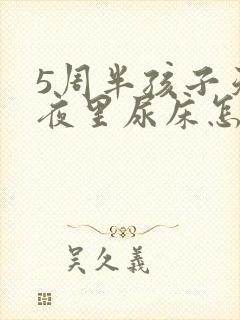 5周半孩子
夜里尿床怎
吴久义